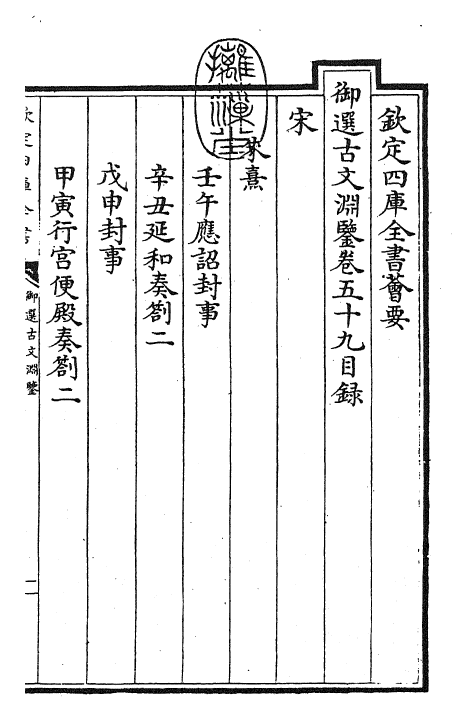 欽定四庫全書薈要
御選古文淵鑒卷五十九目録
宋
朱熹
壬午應詔封事
辛丑延和奏劄二
戊申封事
甲寅行宫便殿奏劄二
欽定四庫全書
御選古文淵鑒